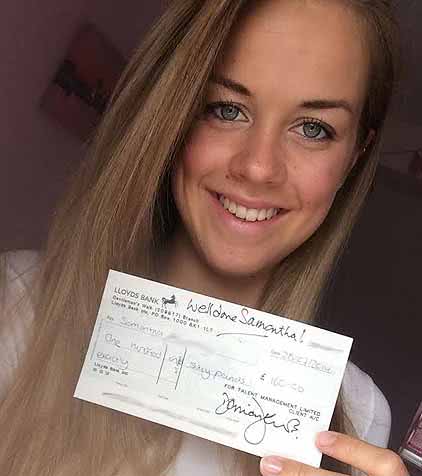 LLOYDS BANK Well done Samantha!
Gentleman's Walk (309617) Branch
Lloyds Bank plc, PO Box 1000 BX1 1LT
Pay Samantha
One hundred and sixty pounds £ 160-00
exactly
FOR TALENT MANAGEMENT LIMITED
CLIENT A/C
Lloyds Bank plc